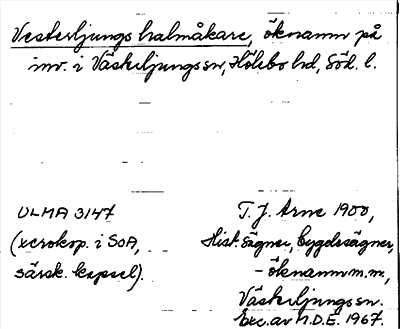 Vesterljungs halmåkare, öknamn på
inv. i Västerljungs sn, Hölebo hd, Söd. l.
ULMA 3147
(xerokop. i SOA,
särsk. kapsel).
T. J. Arne 1900,
Hist. sägner, bygdesägner,
- öknamn m.m.,
Västerljungs sn.
Exc. av M.D.E. 1967.